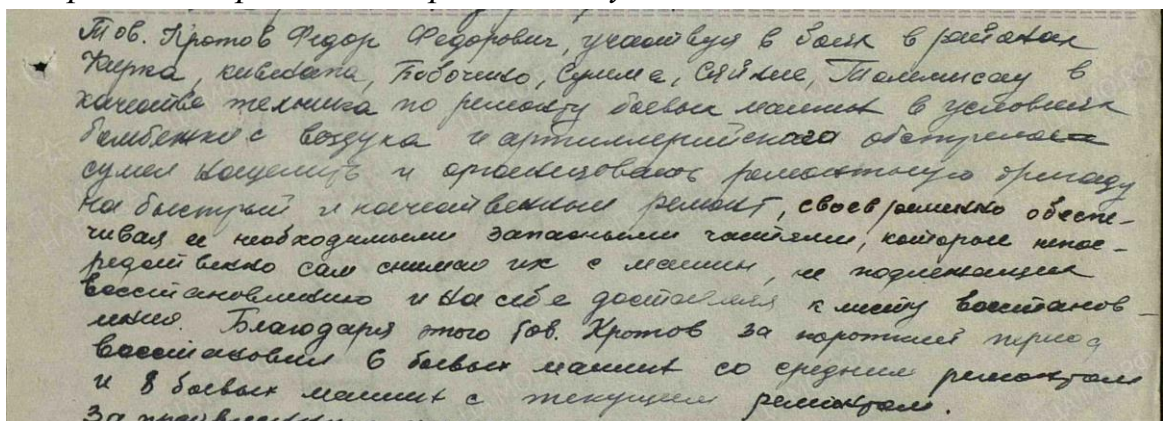 Тов. Кротов Федор Федорович, участвуя в боях в районах
Кирка, Кивенапа, Бобочино, Сумма, Сяйние, Таммисау в
качестве техника по ремонту боевых машин в условиях
бомбежки с воздуха и артиллерийского обстрела
сумел нацелить и организовать ремонтную бригаду
на быстрый и качественный ремонт, своевременно обеспе-
чивая ее необходимыми запасными частями, которые непос-
редственно сам снимал их с машин, не подлежащих
восстановлению и на себе доставлял к месту восстанов-
ления. Благодаря этого тов. Кротов за короткий период
восстановил 6 боевых машин со средним ремонтом
и 8 боевых машин с текущим ремонтом.